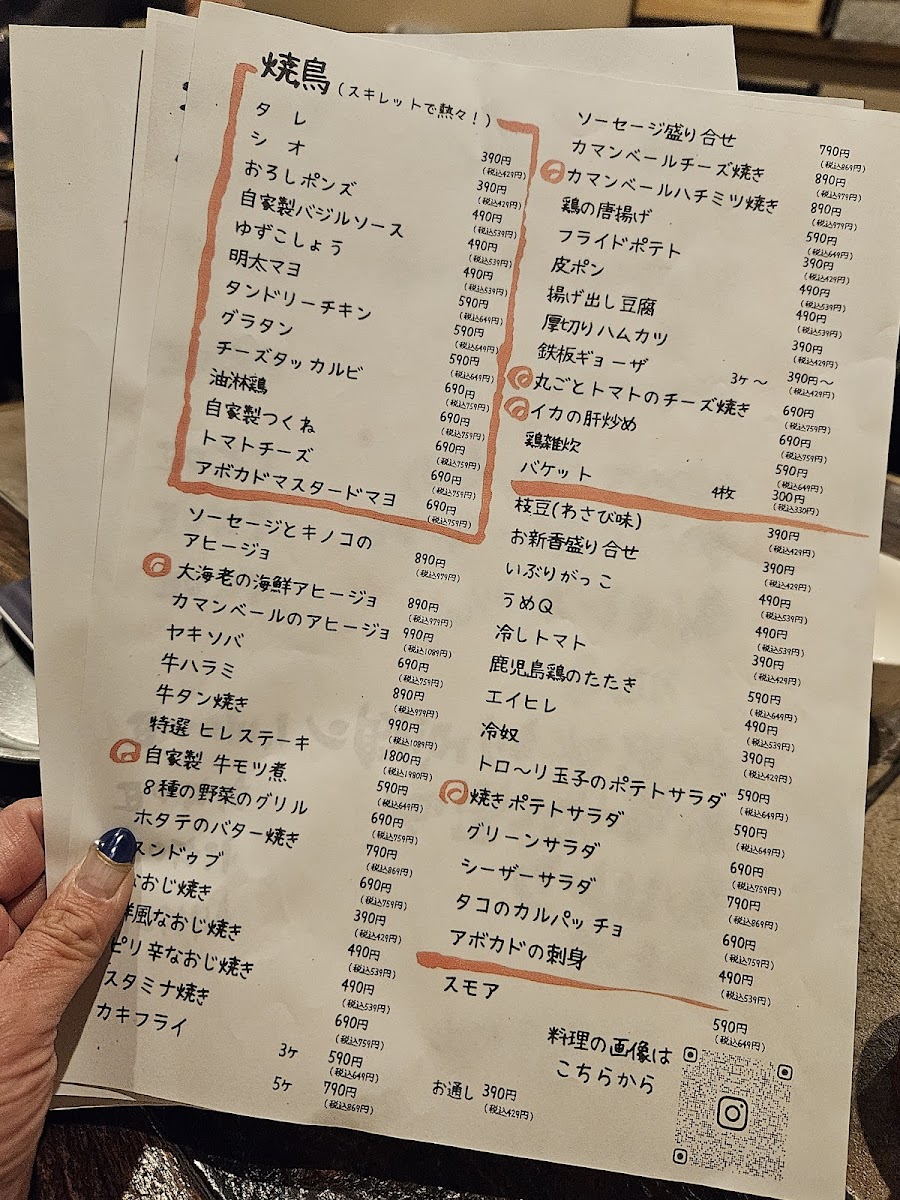 焼鳥（スキレットで熱々！）
タレ 390円（税込429円）
シオ 390円（税込429円）
おろしポンズ 490円（税込539円）
自家製バジルソース 490円（税込539円）
ゆずこしょう 490円（税込539円）
明太マヨ 590円（税込649円）
タンドリーチキン 590円（税込649円）
グラタン 590円（税込649円）
チーズタッカルビ 690円（税込759円）
油淋鶏 690円（税込759円）
自家製つくね 690円（税込759円）
トマトチーズ 690円（税込759円）
アボカドマスタードマヨ 690円（税込759円）
ソーセージとキノコの
アヒージョ 890円（税込979円）
大海老の海鮮アヒージョ 890円（税込979円）
カマンベールのアヒージョ 990円（税込1089円）
ヤキソバ 690円（税込759円）
牛ハラミ 890円（税込979円）
牛タン焼き 990円（税込1089円）
特選 ヒレステーキ 1800円（税込1980円）
自家製 牛モツ煮 590円（税込649円）
8種の野菜のグリル 690円（税込759円）
ホタテのバター焼き 790円（税込869円）
スンドゥブ 690円（税込759円）
なおじ焼き 390円（税込429円）
洋風なおじ焼き 490円（税込539円）
ピリ辛なおじ焼き 490円（税込539円）
スタミナ焼き 690円（税込759円）
カキフライ 3ケ 590円（税込649円）
5ケ 790円（税込869円）
ソーセージ盛り合せ 790円（税込869円）
カマンベールチーズ焼き 890円（税込979円）
カマンベールハチミツ焼き 890円（税込979円）
鶏の唐揚げ 590円（税込649円）
フライドポテト 390円（税込429円）
皮ポン 490円（税込539円）
揚げ出し豆腐 490円（税込539円）
厚切りハムカツ 390円（税込429円）
鉄板ギョーザ 3ケ〜 390円〜（税込429円）
丸ごとトマトのチーズ焼き 690円（税込759円）
イカの肝炒め 690円（税込759円）
鶏雑炊 590円（税込649円）
バケット 4枚 300円（税込330円）
枝豆(わさび味) 390円（税込429円）
お新香盛り合せ 390円（税込429円）
いぶりがっこ 490円（税込539円）
うめQ 490円（税込539円）
冷しトマト 390円（税込429円）
鹿児島鶏のたたき 590円（税込649円）
エイヒレ 490円（税込539円）
冷奴 390円（税込429円）
トロ〜リ玉子のポテトサラダ 590円（税込649円）
焼きポテトサラダ 590円（税込649円）
グリーンサラダ 690円（税込759円）
シーザーサラダ 790円（税込869円）
タコのカルパッチョ 690円（税込759円）
アボカドの刺身 490円（税込539円）
スモア 590円（税込649円）
料理の画像は
こちらから
お通し 390円（税込429円）